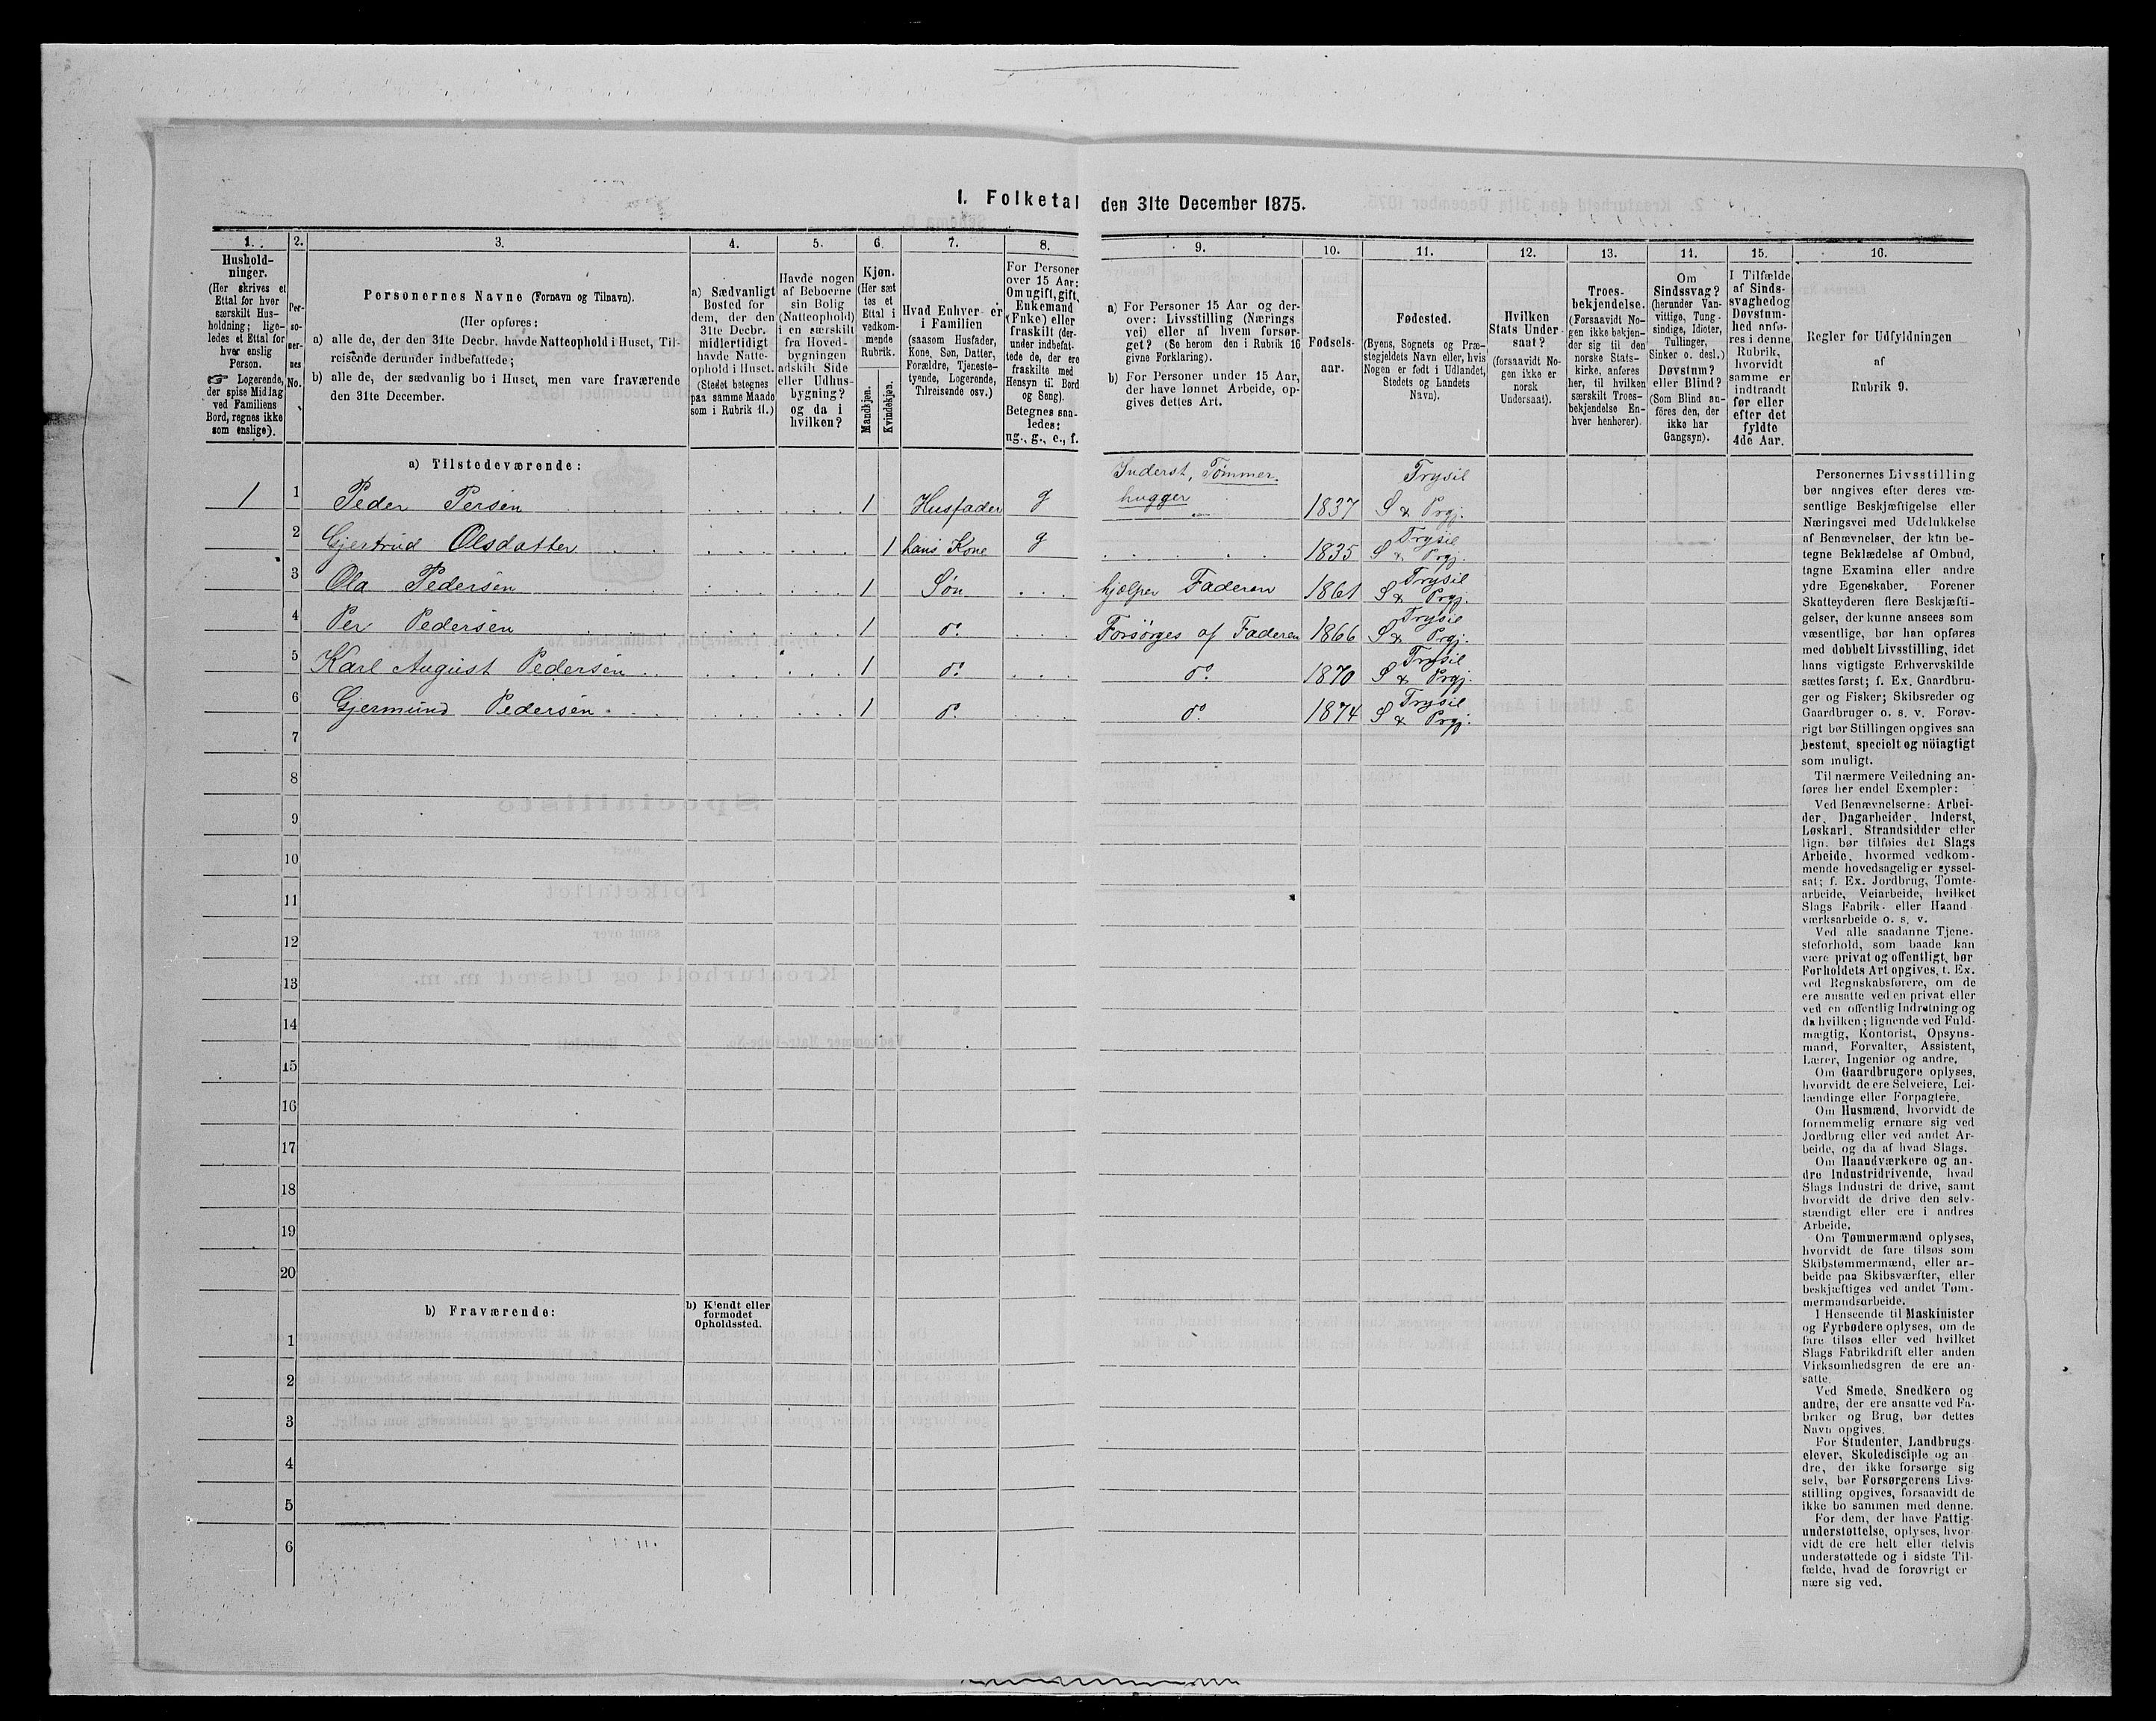 I. Folketal den 31te December 1875.
1. 2. 3. 4. 5. 6. 7. 8. 9. 10. 11. 12. 13. 14. 15. 16.
Hushold-
ninger.
(Her skrives et
Ettal for hver
særskilt Hus-
holdning; lige-
ledes et Ettal for
hver enslig
Person.
☞ Logerende,
der spise Middag
ved Familiens
Bord, regnes ikke
som enslige).
Per-
so-
ner-
nes
No.
Personernes Navne (Fornavn og Tilnavn).
(Her opføres:
a) alle de, der den 31te Decbr. havde Natteophold i Huset, Til-
reisende derunder indbefattede;
b) alle de, der sædvanlig bo i Huset, men vare fraværende
den 31te December.
a) Sædvanligt
Bosted for
dem, der den
31te Decbr.
midlertidigt
havde Natte-
ophold i Huset.
(Stedet betegnes
paa samme Maade
som i Rubrik 11.)
Havde nogen
af Beboerne
sin Bolig
(Natteophold)
i en særskilt
fra Hoved-
bygningen
adskilt Side
eller Udhus-
bygning?
og da i
hvilken?
Kjøn.
(Her sæt
tes et
Ettal i
vedkom-
mende
Rubrik.
Mandkjøn.
Kvindekjøn.
Hvad Enhver er
i Familien
(saasom Husfader,
Kone, Søn, Datter,
Forældre, Tjeneste-
tyende, Logerende,
Tilreisende osv.)
For Personer
over 15 Aar:
Om ugift, gift,
Enkemand
(Enke) eller
fraskilt (der-
under indbefat-
tede de, der ere
fraskilte med
Hensyn til Bord
og Seng).
Betegnes saa-
ledes:
ug., g., e., f.
a) For Personer 15 Aar og der-
over: Livsstilling (Nærings
vei) eller af hvem forsør-
get? (Se herom den i Rubrik 16
givne Forklaring).
b) For Personer under 15 Aar,
der have lønnet Arbeide, op-
gives dettes Art.
Fødsels-
aar.
Fødested.
(Byens, Sognets og Præ-
stegjeldets Navn eller, hvis
Nogen er født i Udlandet,
Stedets og Landets
Navn).
Hvilken
Stats Under-
saat?
(forsaavidt No-
gen ikke er
norsk
Undersaat).
Troes-
bekjendelse.
(Forsaavidt No-
gen ikke bekjen-
der sig til den
norske Stats-
kirke, anføres
her, til hvilken
særskilt Troes-
bekjendelse En-
hver henhører).
Om
Sindssvag?
(herunder Van-
vittige, Tung-
sindige, Idioter,
Tullinger,
Sinker o. desl.)
Døvstum?
eller Blind?
(Som Blind an-
føres den, der
ikke har
Gangsyn).
I Tilfælde
af Sinds-
svaghed og
Døvstum-
hed anfø-
res i denne
Rubrik,
hvorvidt
samme er
indtraadt
før eller
efter det
fyldte
4de Aar.
Regler for Udfyldningen
af
Rubrik 9.
a) Tilstedeværende:
1 1 Peder Persen 1 Husfader g Inderst, Tømmer-
hugger 1837 Trysil S & Prgj.
2 Gjertrud Olsdatter 1 hans Kone g 1835 Trysil S & Prgj.
3 Ola Pedersen 1 Søn hjælper Faderen 1861 Trysil S & Prgj.
4 Per Pedersen 1 do. Forsørges af Faderen 1866 Trysil S & Prgj.
5 Karl August Pedersen 1 do. do. 1870 Trysil S & Prgj.
6 Gjermund Pedersen 1 do. do. 1874 Trysil S & Prgj.
7
8
9
10
11
12
13
14
15
16
17
18
19
20
b) Fraværende:
b) Kjendt eller
formodet
Opholdssted.
1
2
3
4
5
6
Personernes Livsstilling
bør angives efter deres væ-
sentlige Beskjæftigelse eller
Næringsvei med Udelukkelse
af Benævnelser, der kun be-
tegne Beklædelse af Ombud,
tagne Examina eller andre
ydre Egenskaber. Forener
Skatteyderen flere Beskjæfti-
gelser, der kunne ansees som
væsentlige, bør han opføres
med dobbelt Livsstilling, idet
hans vigtigste Erhvervskilde
sættes først; f. Ex. Gaardbru-
ger og Fisker; Skibsreder og
Gaardbruger o. s. v. Forøv-
rigt bør Stillingen opgives saa
bestemt, specielt og nöiagtigt
som muligt.
Til nærmere Veiledning an-
føres her endel Exempler:
Ved Benævnelserne: Arbei-
der, Dagarbeider, Inderst,
Løskarl, Strandsidder eller
lign. bør tilføies det Slags
Arbeide, hvormed vedkom-
mende hovedsagelig er syssel-
sat; f. Ex. Jordbrug, Tomte-
arbeide, Veiarbeide, hvilket
Slags Fabrik- eller Haand-
værksarbeide o. s. v.
Ved alle saadanne Tjene-
steforhold, som baade kan
være privat og offentligt, bør
Forholdets Art opgives, t. Ex.
ved Regnskabsførere, om de
ere ansatte ved en privat eller
ved en offentlig Indretning og
da hvilken; lignende ved Fuld-
mægtig, Kontorist, Opsyns-
mand, Forvalter, Assistent,
Lærer, Ingeniør og andre.
Om Gaardbrugere oplyses,
hvorvidt de ere Selveiere, Lei-
lændinge eller Forpagtere.
Om Husmænd, hvorvidt de
fornemmelig ernære sig ved
Jordbrug eller ved andet Ar-
beide, og da af hvad Slags.
Om Haandværkere og an-
dre Industridrivende, hvad
Slags Industri de drive, samt
hvorvidt de drive den selv-
stændigt eller ere i andres
Arbeide.
Om Tømmermænd oplyses,
hvorvidt de fare tilsøs som
Skibstømmermænd, eller ar-
beide paa Skibsværfter, eller
beskjæftiges ved andet Tøm-
mermandsarbeide.
I Henseende til Maskinister
og Fyrbødere oplyses, om de
fare tilsøs eller ved hvilket
Slags Fabrikdrift eller anden
Virksomhedsgren de ere an-
satte.
Ved Smede, Snedkere og
andre, der ere ansatte ved Fa-
briker og Brug, bør dettes
Navn opgives.
For Studenter, Landbrugs-
elever, Skoledisciple og an
dre, der ikke forsørge sig
selv, bør Forsørgerens Livs-
stilling opgives, forsaavidt de
ikke bo sammen med denne.
For dem, der have Fattig-
understøttelse, oplyses, hvor-
vidt de ere helt eller delvis
understøttede og i sidste Til-
fælde, hvad de forøvrigt er
nære sig ved.